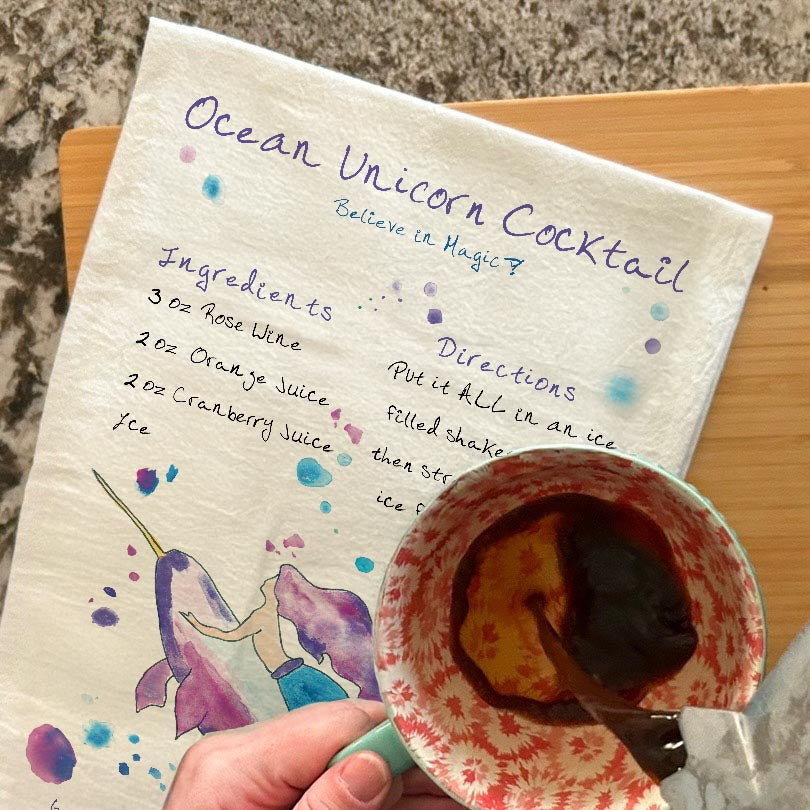 Ocean Unicorn Cocktail
Believe in Magic?
Ingredients
3 oz Rose Wine
2 oz Orange Juice
2 oz Cranberry Juice
Ice
Directions
Put it ALL in an ice
filled
then
ice